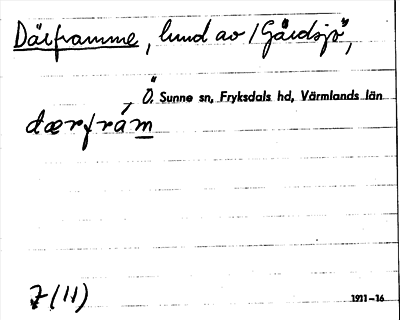 Därframme, lund av /Gärdsjö",
Ö. Sunne sn, Fryksdals hd, Värmlands län
dærfrám
7(11)
1911-16